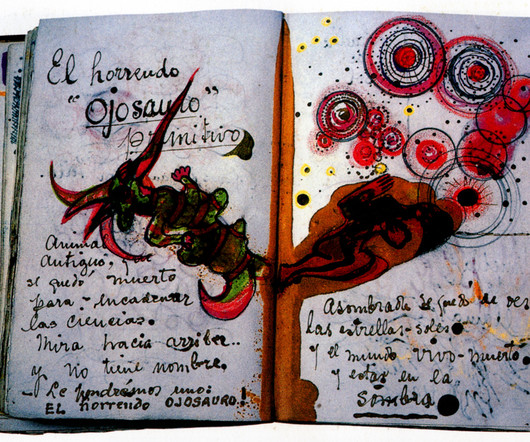 El horrendo
"Ojosauro"
primitivo
Animal
Antiguo, que
se quedó muerto
para-encadenar
las ciencias.
Mira hacia arriba..
y no tiene nombre.
-Le pondremos uno:
EL horrendo OJOSAURO!
Asombrada se quedó de ver
las estrellas-soles
y el mundo vivo-muerto
y estar en la
sombra